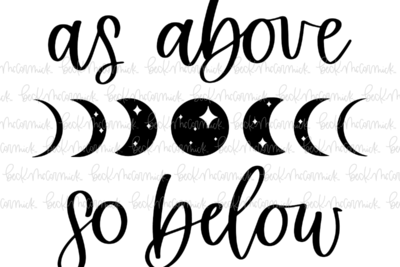 as above
so below